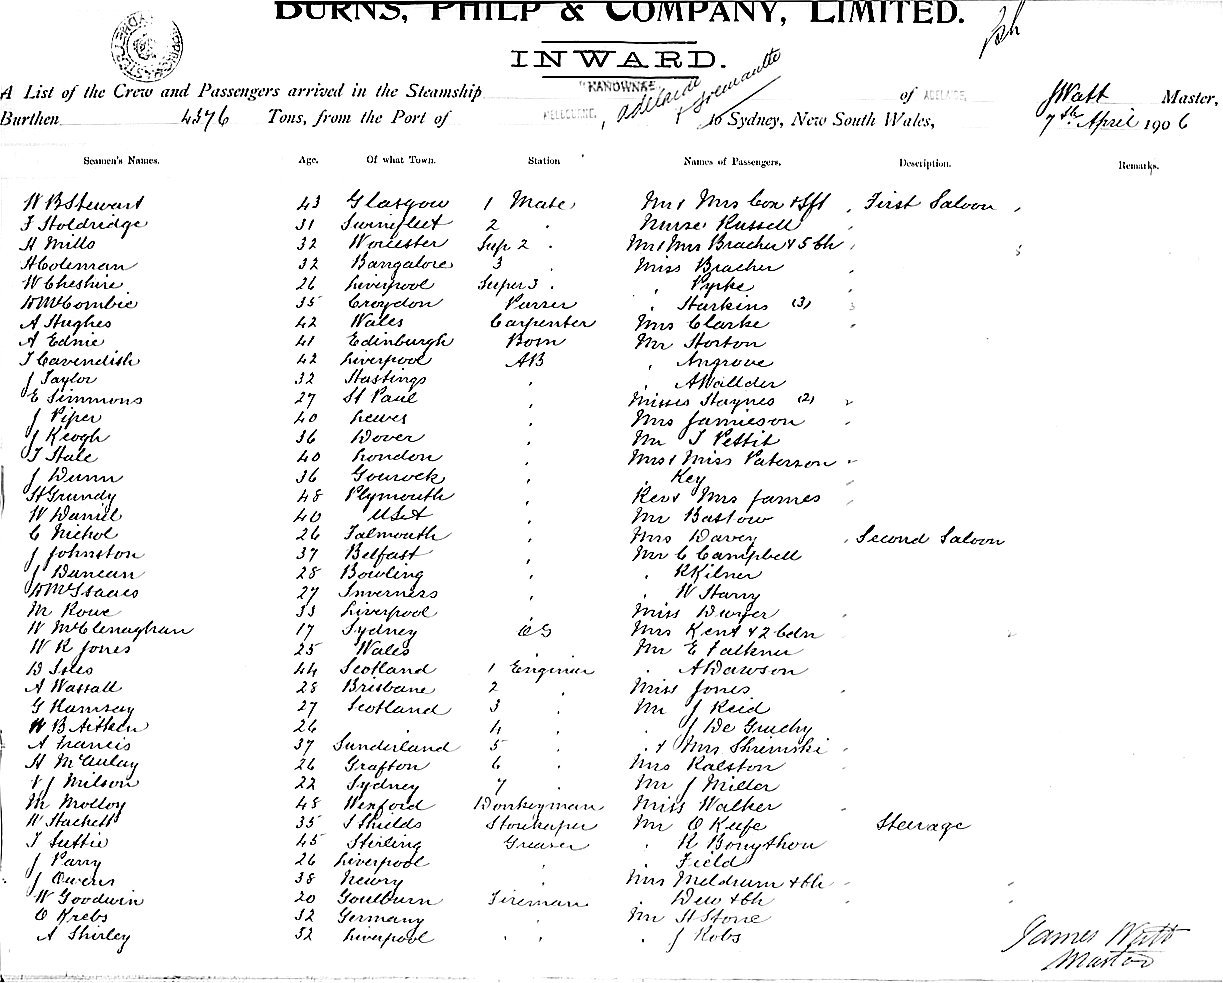 BURNS, PHILP & COMPANY, LIMITED.
INWARD.
A List of the Crew and Passengers arrived in the Steamship "KANOWNA" of ADELAIDE, J Watt Master,
Burthen 4576 Tons, from the Port of MELBOURNE, Adelaide & Fremantle to Sydney, New South Wales, 7th April 1906
Seamen's Names. Age. Of what Town. Station Names of Passengers. Description. Remarks.
W B Stewart 43 Glasgow 1 Mate Mr & Mrs Cox & Sft First Saloon
F Holdridge 31 Swinefleet 2 Nurse Russell
H Mills 32 Worcester Sup 2 Mr & Mrs Bracher & 5 Ch
H Coleman 32 Bangalore 3 Miss Bracher
W Cheshire 26 Liverpool Super 3 Pyrke
D McCombie 35 Croydon Purser Harkins (3)
A Hughes 42 Wales Carpenter Mrs Clarke
A Ednie 41 Edinburgh Bosn Mr Horton
T Cavendish 42 Liverpool AB Angrove
J Taylor 32 Hastings A Wallder
E Simmons 27 St Paul Misses Haynes (2)
J Piper 40 Lewes Mrs Jamieson
J Keogh 36 Dover Mr T Pettit
T Hale 40 London Mrs & Miss Paterson
J Dunn 36 Gourock Key
H Grundy 48 Plymouth Rev & Mrs James
W Daniel 40 USA Mr Bastow
C Nichol 26 Falmouth Mrs Davey Second Saloon
J Johnston 37 Belfast Mr C Campbell
J Duncan 28 Bowling R Kilner
D McIsaacs 27 Inverness W Harry
M Rowe 33 Liverpool Miss Dwyer
W McClenaghan 17 Sydney OS Mrs Kent & 2 Cdn
W R Jones 25 Wales Mr E Falkner
D Isles 44 Scotland 1 Engineer A Dawson
A Wassall 28 Brisbane 2 Miss Jones
G Ramsay 27 Scotland 3 Mr J Reid
W B Aitken 26 4 J De Gruchy
A Francis 37 Sunderland 5 & Mrs Shrimski
H McAulay 26 Grafton 6 Mrs Ralston
V J Milson 22 Sydney 7 Mr J Miller
M Molloy 48 Wexford Donkeyman Miss Walker
W Hackett 35 S Shields Storekeeper Mr O Keefe Steerage
T Suttie 45 Stirling Greaser R Bonython
J Parry 26 Liverpool Field
J Owens 38 Newry Mrs Meldrum & Ch
W Goodwin 20 Goulburn Fireman Dew & Ch
O Krebs 32 Germany Mr H Stone
A Shirley 32 Liverpool J Robs
James Watt
Master